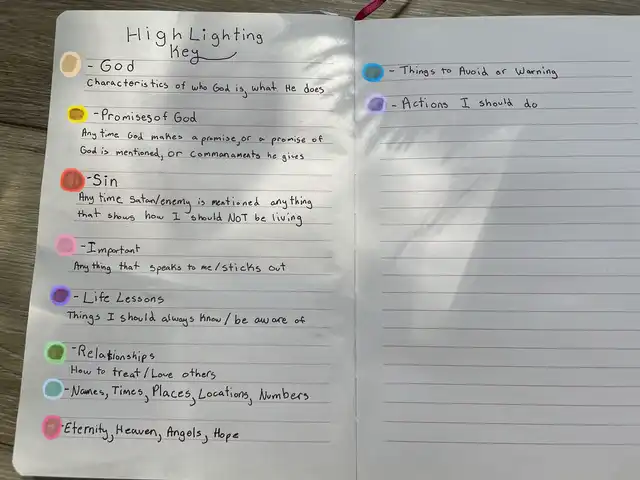 HighLighting
Key
- God
Characteristics of who God is, what He does
- Promises of God
Any time God makes a promise, or a promise of
God is mentioned, or commandments he gives
- Sin
Any time Satan/enemy is mentioned anything
that shows how I should NOT be living
- Important
Anything that speaks to me/sticks out
- Life Lessons
Things I should always know/be aware of
- Relationships
How to treat/Love others
- Names, Times, Places, Locations, Numbers
- Eternity, Heaven, Angels, Hope
- Things to Avoid or Warning
- Actions I should do